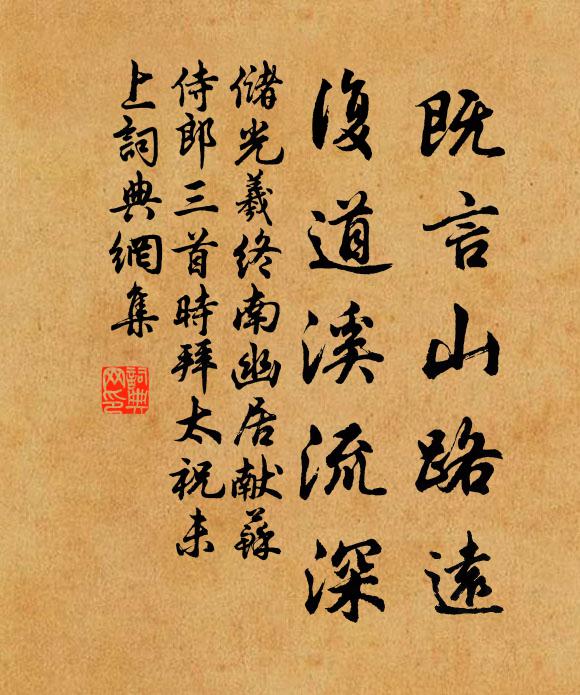 既言山路遠
復道溪流深
儲光羲終南幽居献蘇
侍郎三首時拜太祝未
上詞典網集
詞典
网印